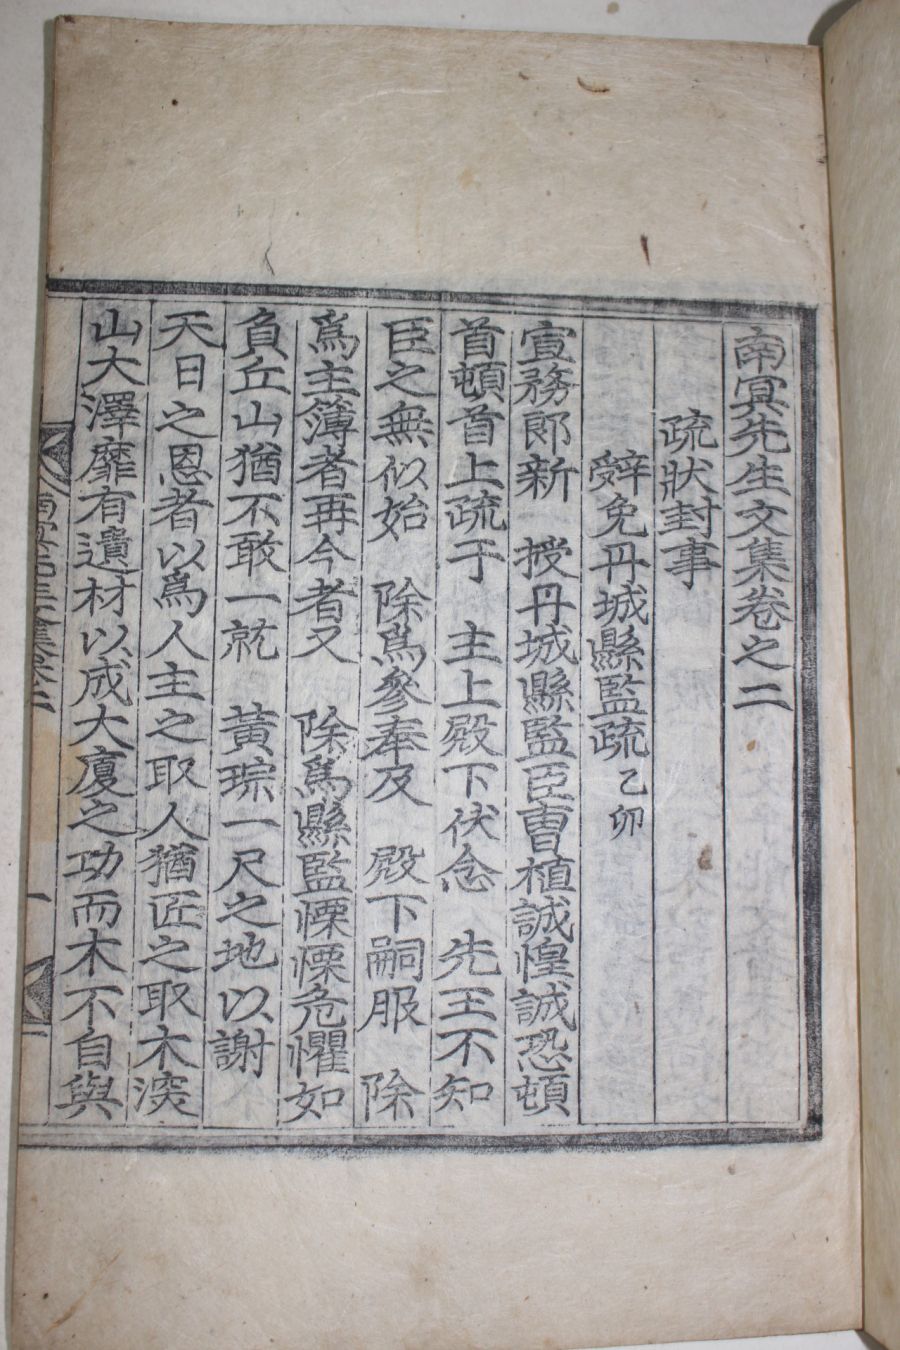 南冥先生文集卷之二
疏狀封事
辤免丹城縣監疏 乙卯
宣務郞新 授丹城縣監臣曺植誠惶誠恐頓
首頓首上疏于 主上殿下伏念 先王不知
臣之無似始 除爲參奉及 殿下嗣服 除
爲主簿者再今者又 除爲縣監慄慄危懼如
負丘山猶不敢一就 黃琮一尺之地以謝
天日之恩者以爲人主之取人猶匠之取木深
山大澤靡有遺材以成大廈之功而木不自與